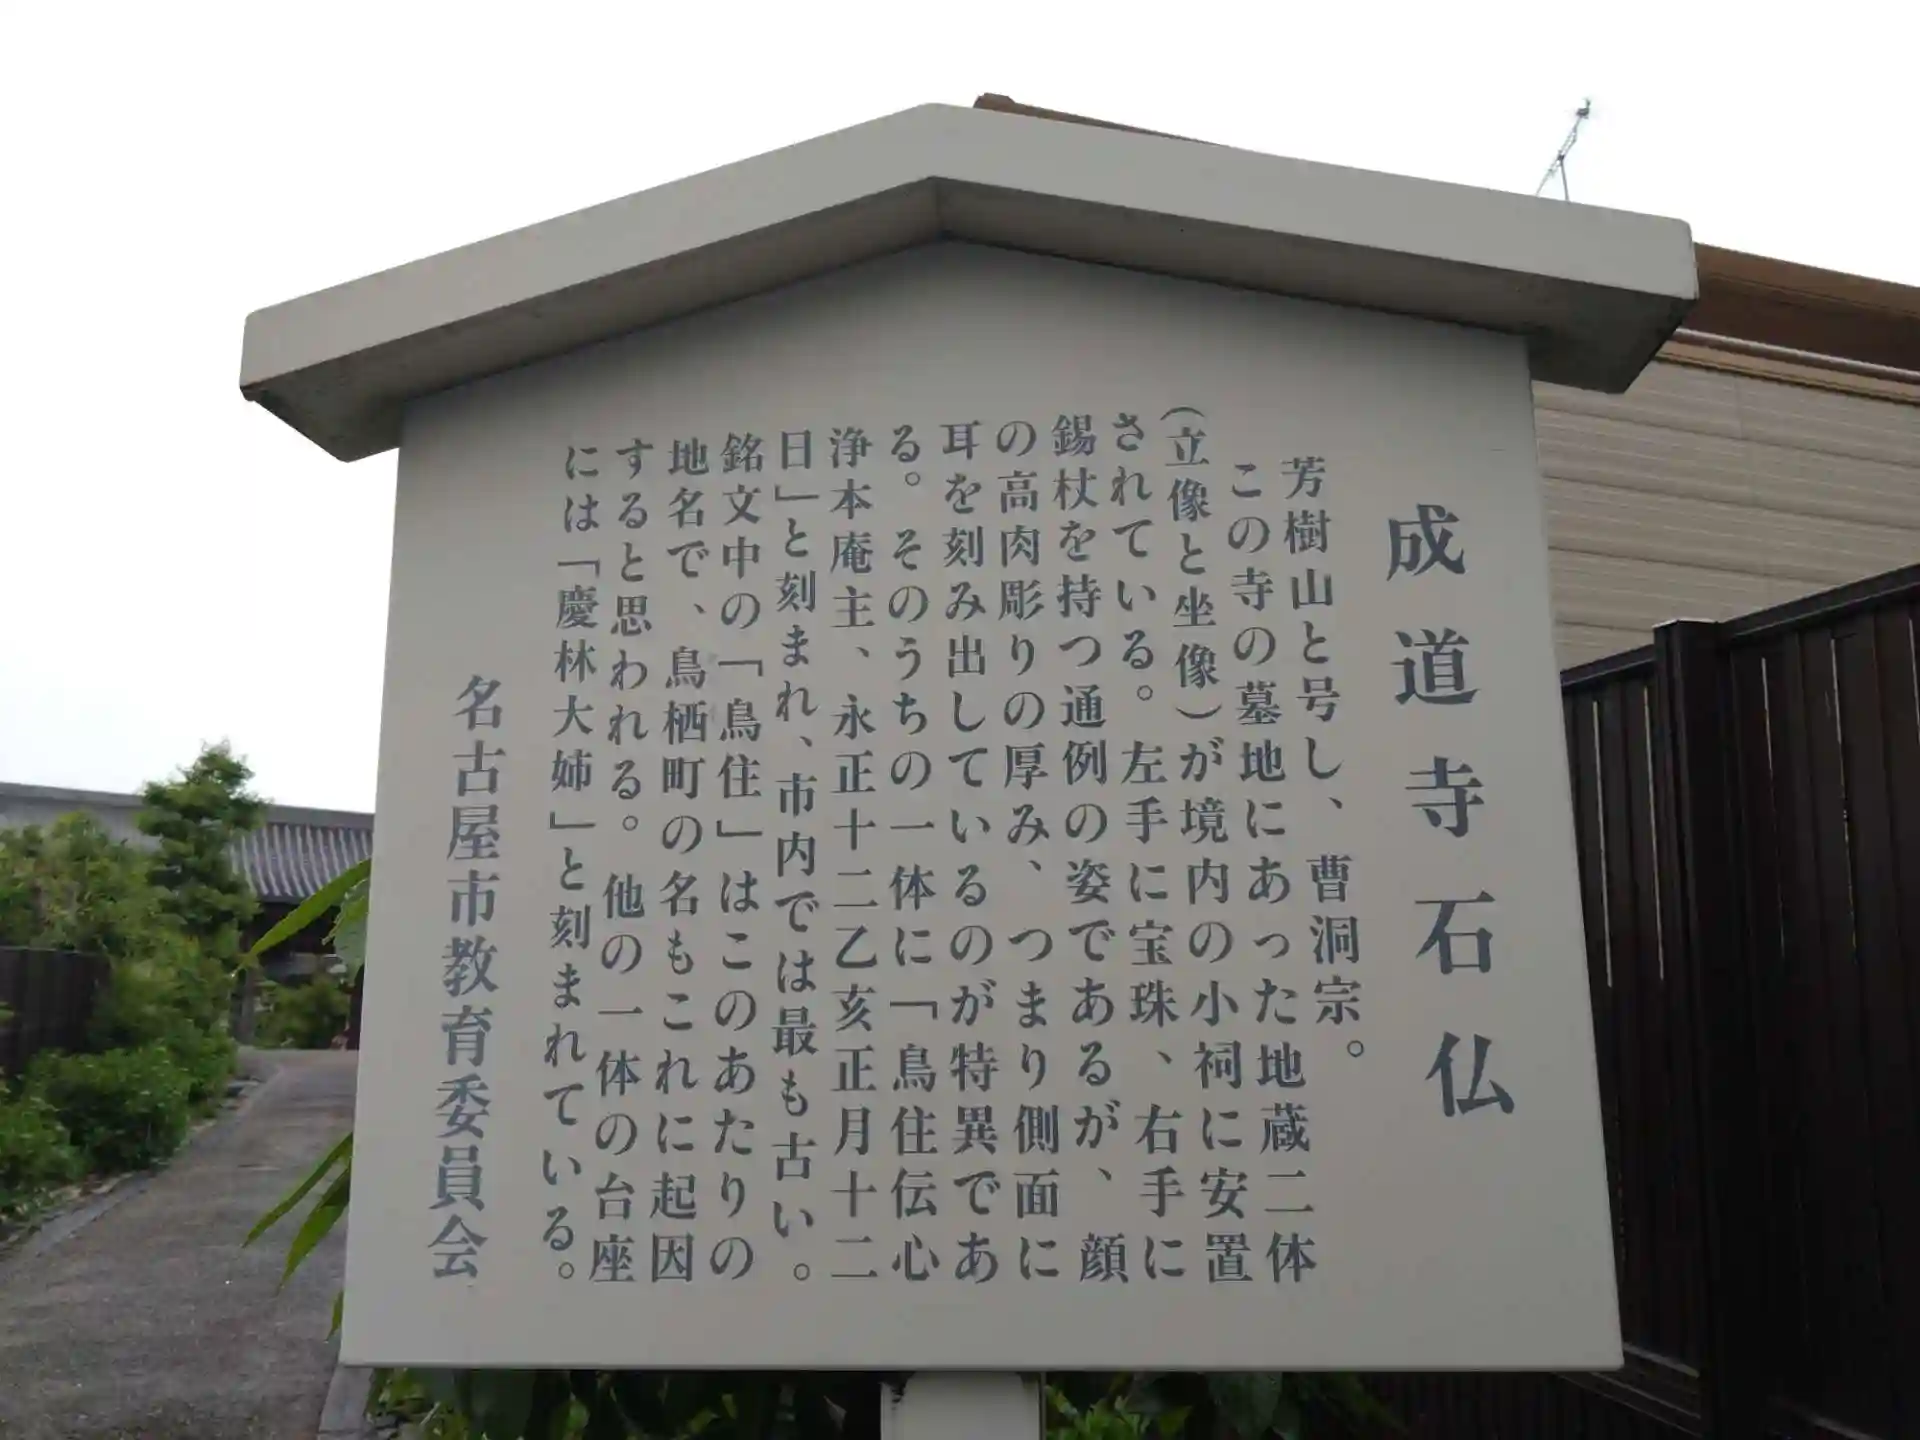 成道寺石仏
芳樹山と号し、曹洞宗。
この寺の墓地にあった地蔵二体
(立像と坐像)が境内の小祠に安置
されている。左手に宝珠、右手に
錫杖を持つ通例の姿であるが、顔
の高肉彫りの厚み、つまり側面に
耳を刻み出しているのが特異であ
る。そのうちの一体に「鳥住伝心
浄本庵主、永正十二乙亥正月十二
日」と刻まれ、市内では最も古い。
銘文中の「鳥住」はこのあたりの
地名で、鳥栖町の名もこれに起因
すると思われる。他の一体の台座
には「慶林大姉」と刻まれている。
名古屋市教育委員会